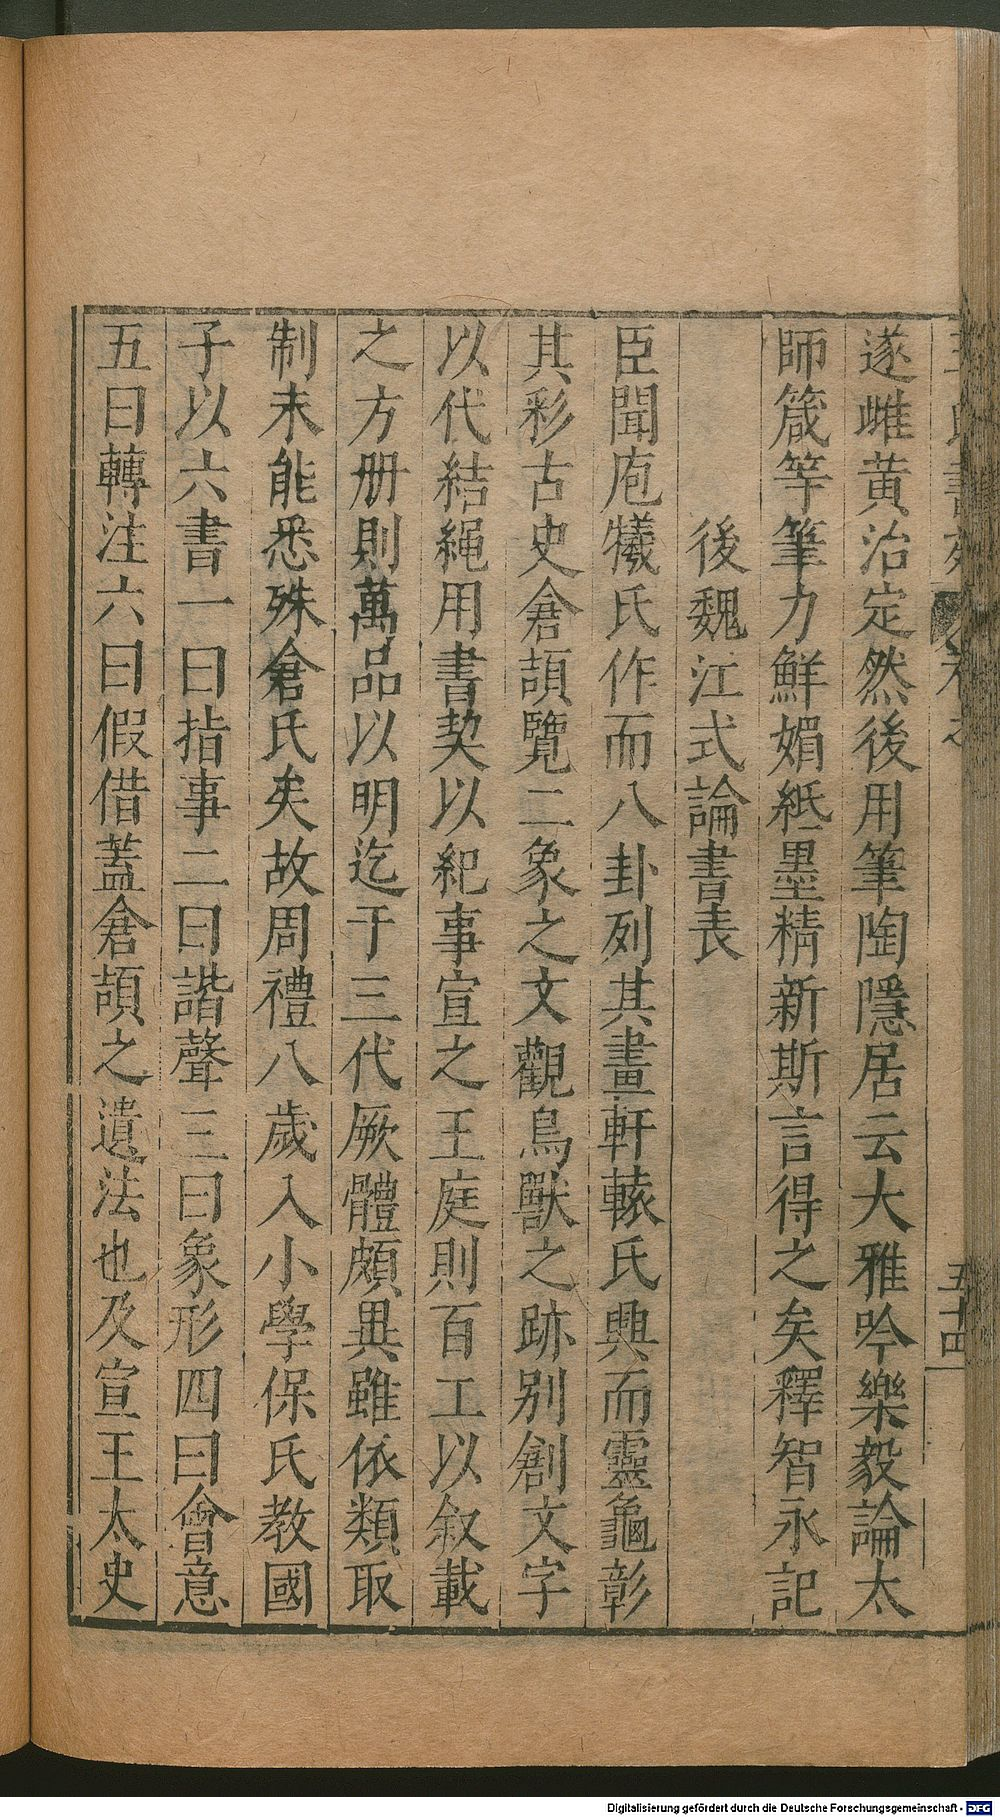 遂雌黃治定然後用筆陶隱居云大雅吟樂毅論太
師箴等筆力鮮媚紙墨精新斯言得之矣釋智永記
後魏江式論書表
臣聞庖犧氏作而八卦列其畫軒轅氏興而靈龜彰
其彩古史倉頡覽二象之文觀鳥獸之跡別創文字
以代結繩用書契以紀事宣之王庭則百工以叙載
之方册則萬品以明迄于三代厥體頗異雖依類取
制未能悉殊倉氏矣故周禮八歲入小學保氏教國
子以六書一曰指事二曰諧聲三曰象形四曰會意
五曰轉注六曰假借蓋倉頡之遺法也及宣王太史
五十四
Digitalisierung gefördert durch die Deutsche Forschungsgemeinschaft - DFG